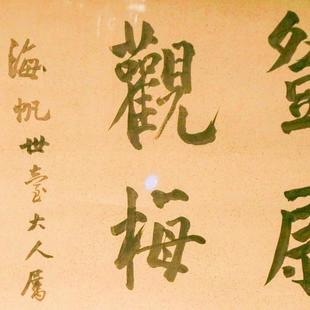 登
觀梅
海帆世臺大人属